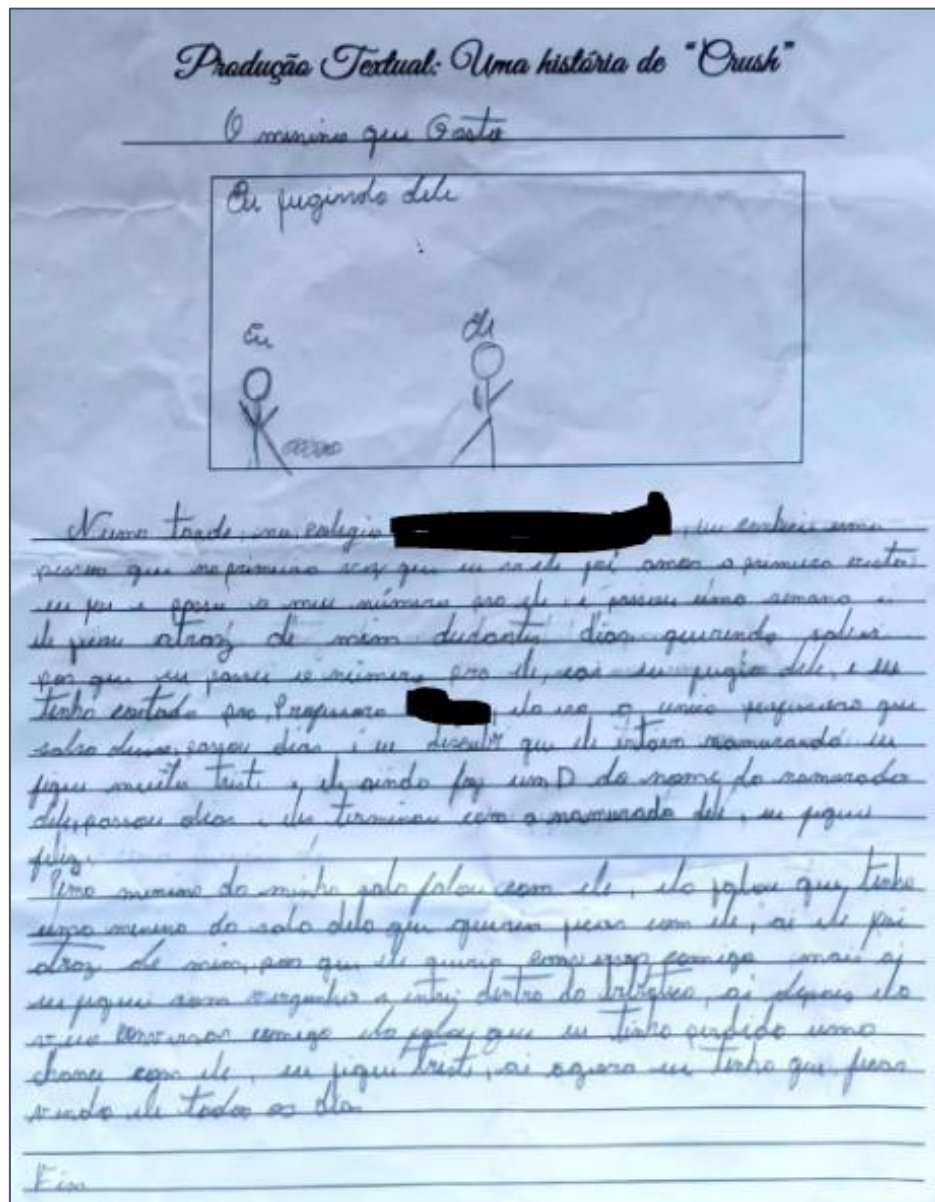 Produção Textual: Uma história de "Crush"
O minino que Gosto
Eu fugindo dele
Eu
ele
Numa tarde, no colegio, eu conheci uma
pessoa que na primeira vez que eu vi ele foi amor a primera vista
eu fui e passei o meu número pro ele, e passou uma semana e
ele ficou atraz de mim dudantes dias querendo saber
por que eu passei o número pro ele, eu fugia dele, e eu
tinha contado pro Profesora ela era a unica profesora que
sabia disso, passou dias i eu discubri que ele estava namorando eu
fiquei muito trist, e ele ainda fez um D do nome do namorado
dele, passou dias, eles terminou com o namorado dele, eu fiquei
feliz.
Uma menina da minha sala falou com ele, ela falou que tinha
uma menina da sala dela que queria ficar com ele, ai ele foi
atraz de mim, por que ele queria conversar comigo mais ai
eu fiquei com vergonha e entrei dentro da , ai depois ela
veio conversar comigo ela falou que eu tinha perdido uma
chance com ele, eu fiquei trist, ai agora eu tenho que ficar
vendo ele todos os dia
Fim